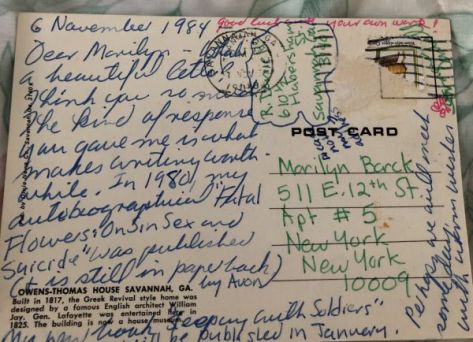 6 November 1984
Good luck with your own work!
Dear Marilyn – What
a beautiful letter!
Thank you so much.
The kind of response
you gave me is what
makes writing worth
while. In 1980, my
autobiographical Fatal
Flowers: On Sin, Sex and
Suicide" was published
(it is still in paperback)
by Avon
SAVANNAH, GA
R.
610
Habersham
Savannah
31401
POST CARD
Marilyn Barck
511 E. 12th St.
Apt # 5
New York
New York
10009
OWENS-THOMAS HOUSE SAVANNAH, GA.
Built in 1817, the Greek Revival style home was
designed by a famous English architect William
Jay. Gen. Lafayette was entertained here in
1825. The building is now a house museum.
My "Sleeping with Soldiers"
will be published in January.
Perhaps we will meet
some day.
with warm wishes